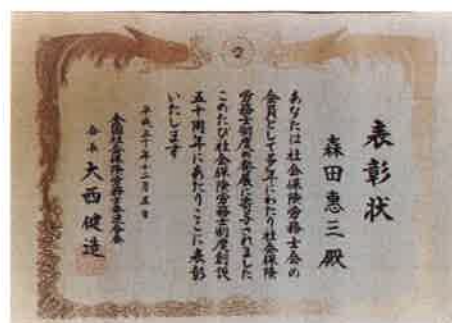 表彰状
森田惠三殿
あなたは社会保険労務士会の
会員として多年にわたり社会保険
労務士制度の発展に寄与されました
このたび社会保険労務士制度創設
五十周年にあたりここに表彰
いたします
平成三十年十二月五日
全国社会保険労務士会連合会
会長 大西健造